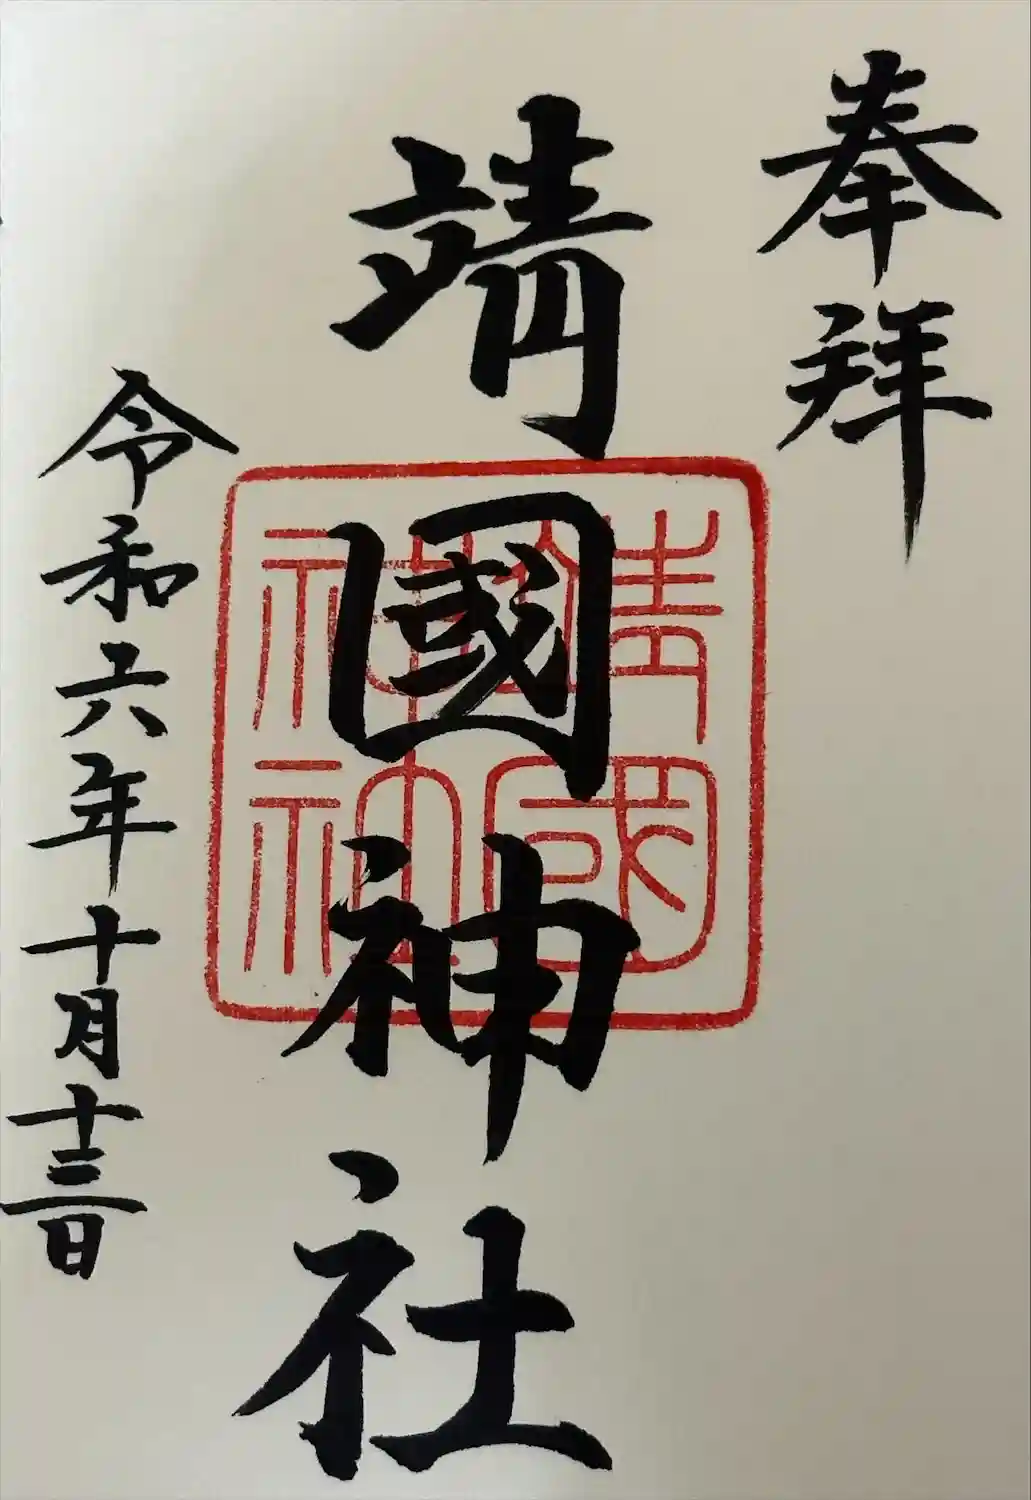 奉拜
靖國神社
靖國
神社
令和六年十月十三日